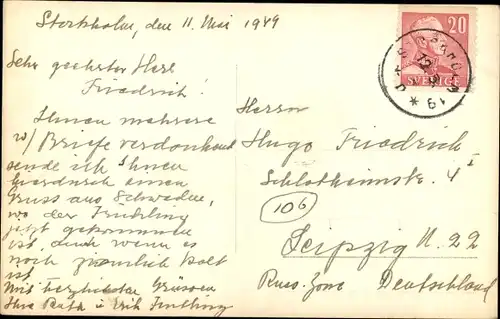 Stockholm, den 11. Mai 1949
Sehr geehrter Herr
Friedrich!
Ihnen mehrere
Briefe verdankend
sende ich Ihnen
hierdurch einen
Gruss aus Schweden,
wo der Frühling
jetzt gekommen
ist, auch wenn es
noch ziemlich kalt
ist
Mit herzlichsten Grüssen
Ihre Ruth u. Erik
20
SVERIGE
Herrn
Hugo Friedrich
Schlotheimstr. 4 I
(10b)
Leipzig N. 22
Russ. Zone Deutschland